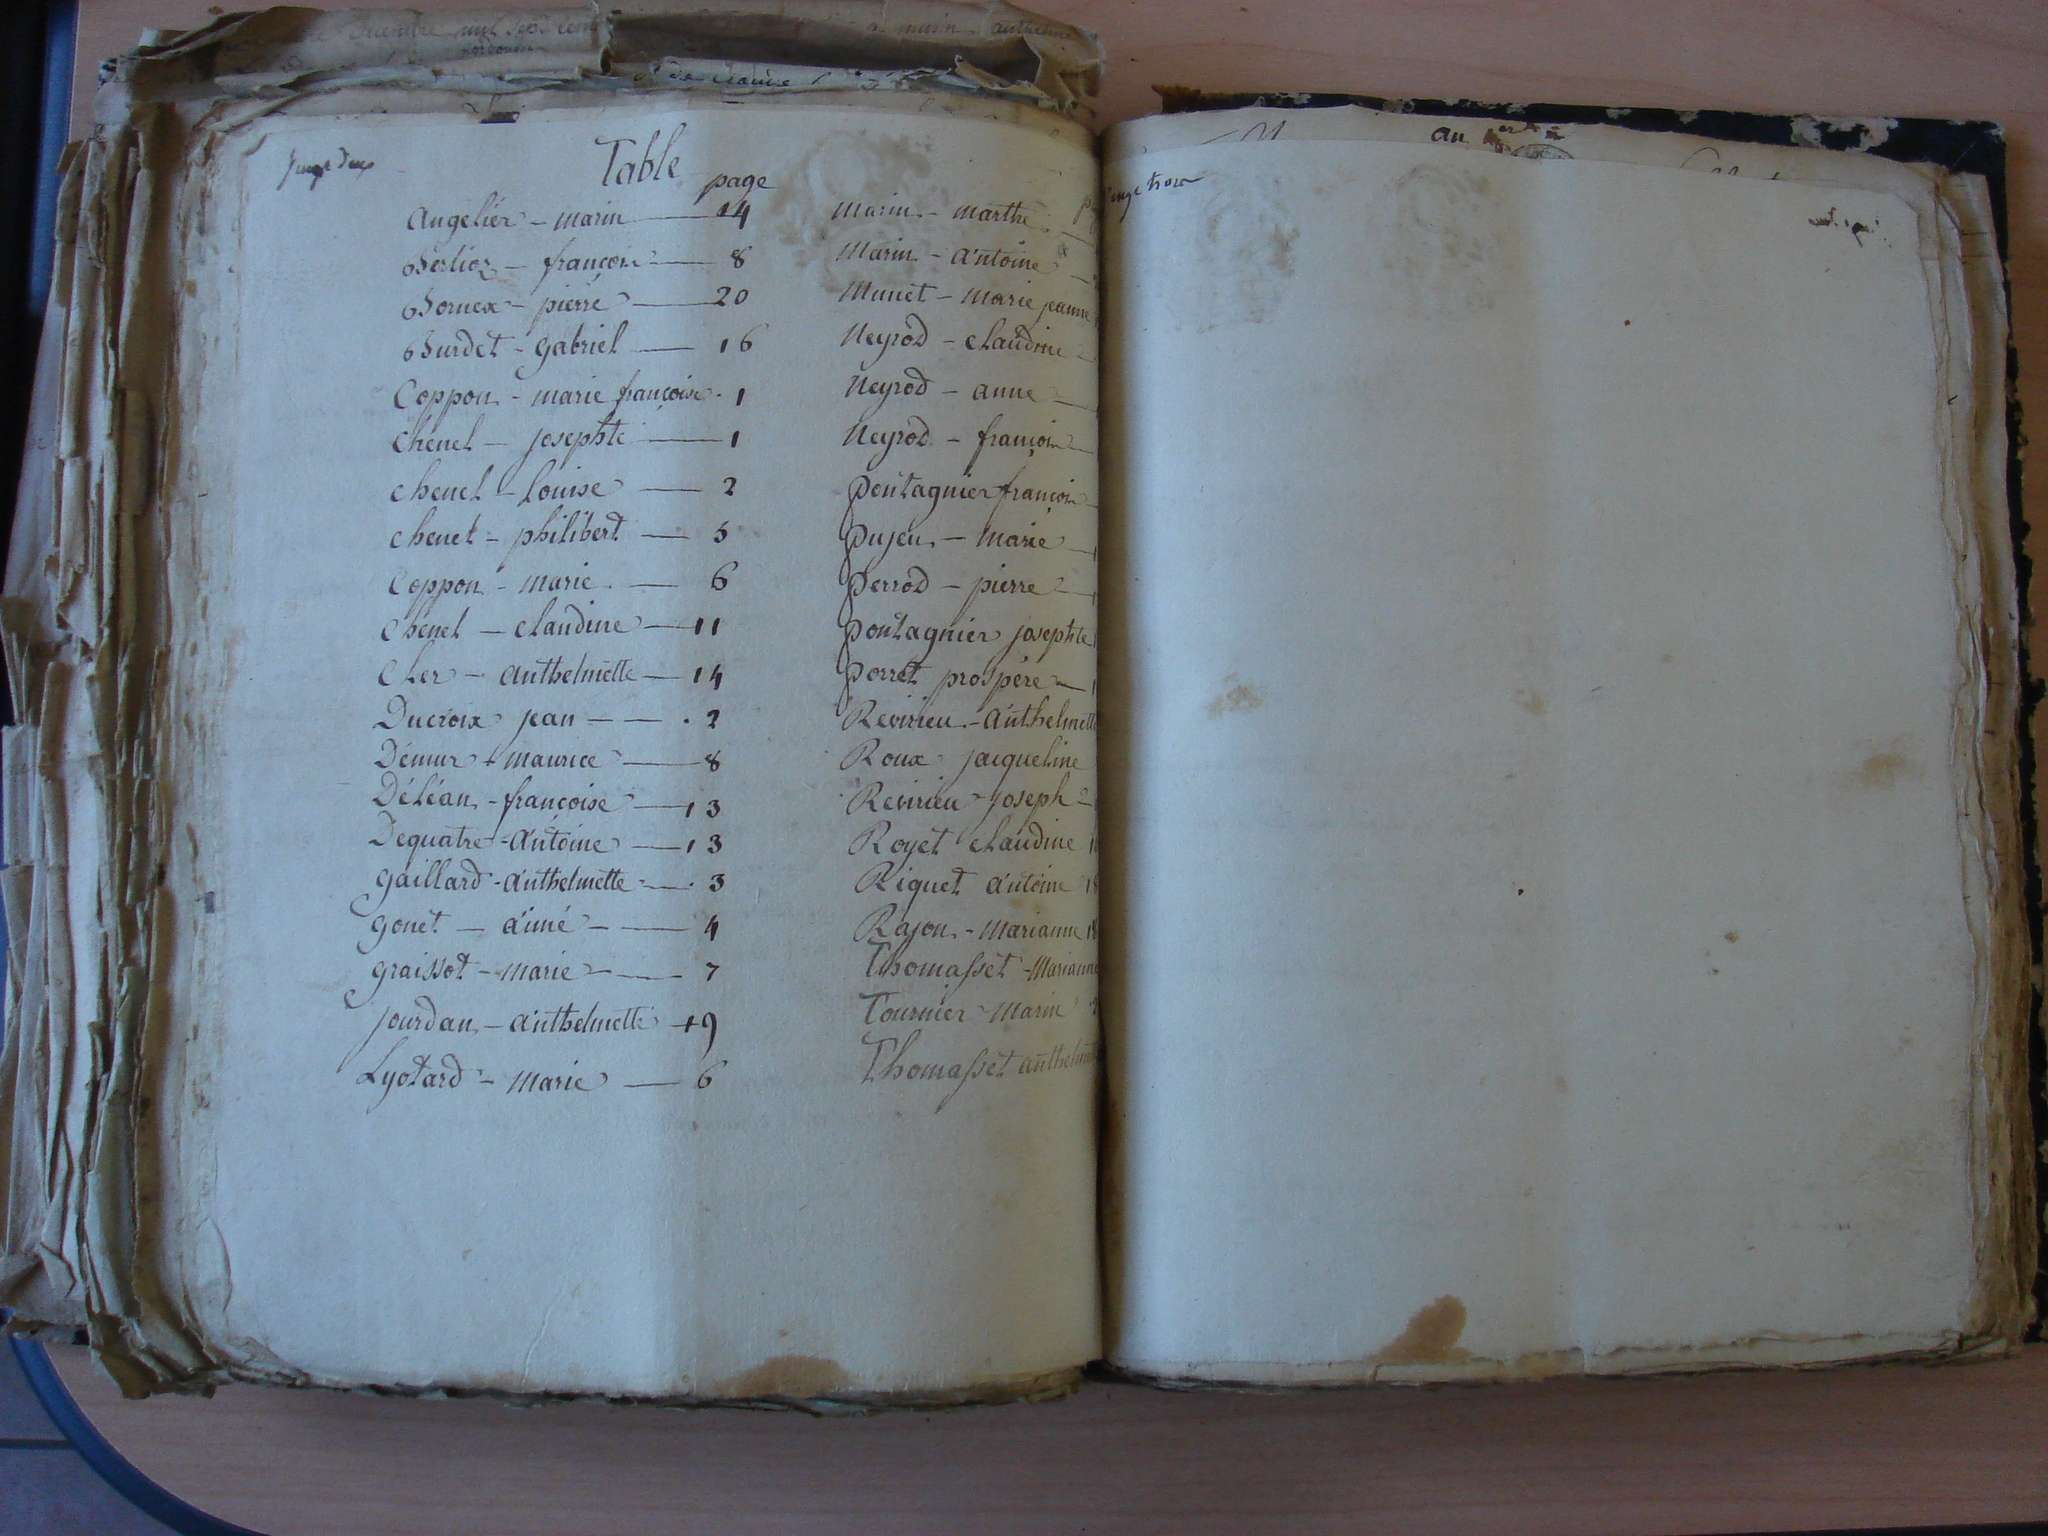 vingt deux
Table
page
Angelier - marin 14
Berlioz - françois 8
Bornex - pierre 20
Burdet - gabriel 16
Coppon - marie françoise 1
Chenel - josephte 1
chenel - Louise 2
chenel - philibert 5
Coppon - marie 6
Chenel - claudine 11
Cler - anthelmette 14
Ducroix jean 2
Démur - maurice 8
Déléan - françoise 13
Dequatre - antoine 13
gaillard - anthelmette 3
gonet - aimé 4
graissot - marie 7
jourdan - anthelmette 19
Lyotard - marie 6
Marin - marthe
Marin - antoine
Munet - marie jeanne
Neyrod - claudine
Neyrod - anne
Neyrod - françois
Pontagnier françois
Pujeu - marie
Perrod - pierre
Pontagnier josephte
Porret prospère
Revirieu - anthelmette
Roux jacqueline
Revirieu joseph
Royet claudine
Riquet antoine 18
Rajon - marianne
Thomasset - Marianne
Tournier Marin
Thomasset
vingt trois
au